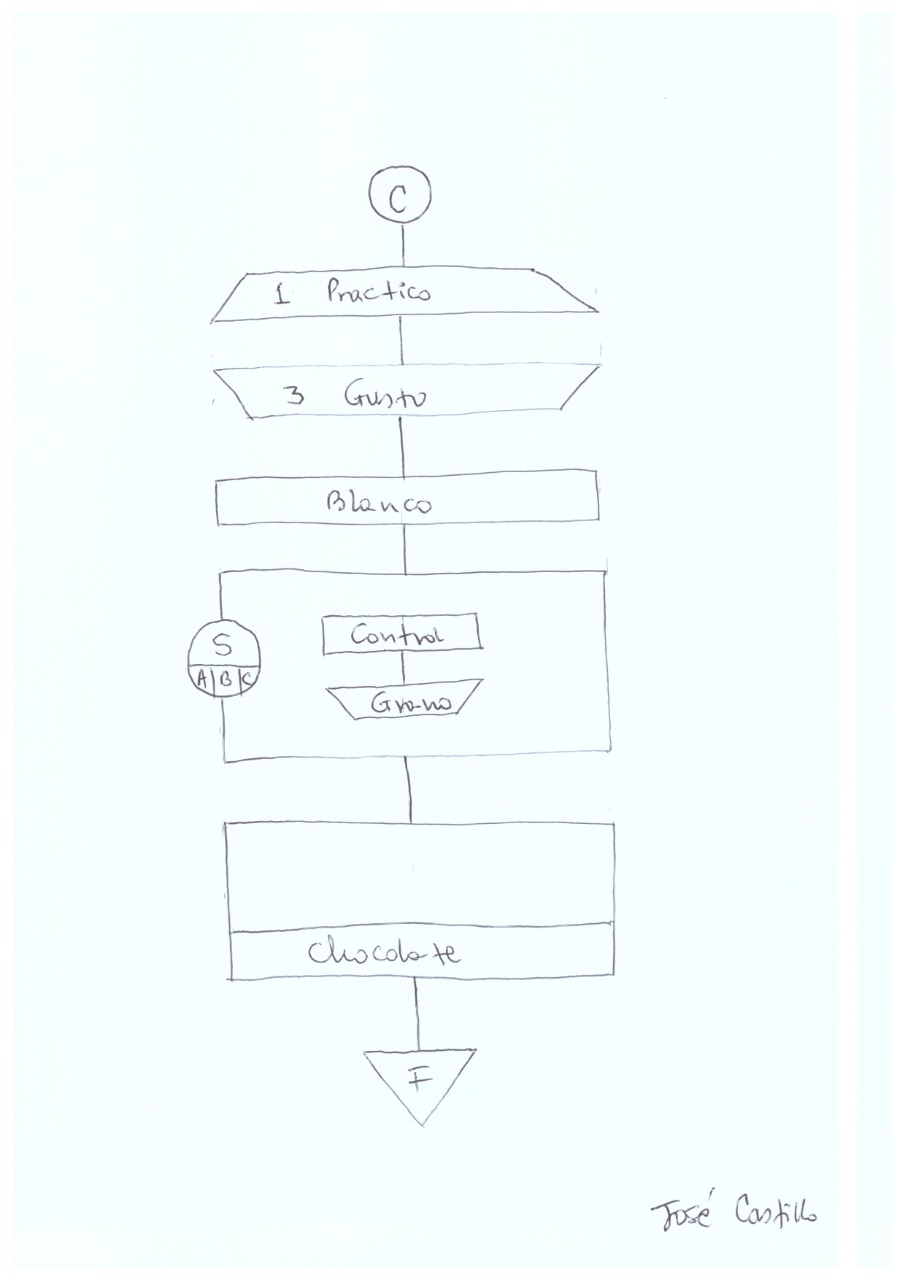 C
1 Practico
3 Gusto
Blanco
Control
S
A B C
Grano
Chocolate
F
José Castillo